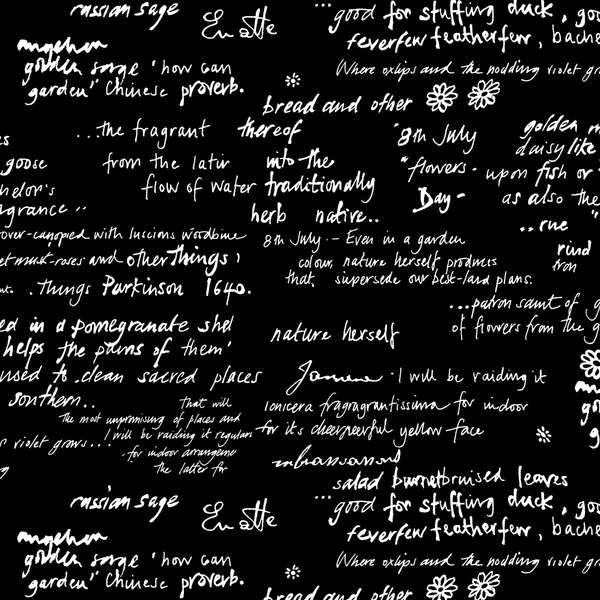 russian sage
...good for stuffing duck, goo
feverfew featherfew, bache
golden sage 'how can
Where oxlips and the nodding violet gro
garden" Chinese proverb.
bread and other
...the fragrant thereof
"8th July
golden m
daisy like
goose
from the latin
into the
"flowers - upon fish or
helor's
flow of water traditionally
Day-
as also the
agrance..
herb native..
..rue
over-canopied with luscious woodbine
8th July - Even in a garden
rind
et musk-roses and other things,
colour, nature herself produces
from
.things Parkinson 1640.
that, supersede our best-laid plans.
...patron saint of g
ed in a pomegranate shel
of flowers from the g
helps the pains of them'
nature herself
used to clean sacred places
I will be raiding it
southern..
that will
lonicera fragragrantissima for indoor
The most unpromising of places and
for it's cheerpeerful yellow face
violet grows...
I will be raiding it regularl
for indoor arrangeme
the latter for
salad burnetbruised leaves
russian sage
...good for stuffing duck, goo
feverfew featherfew, bache
golden sage 'how can
Where oxlips and the nodding violet gro
garden" Chinese proverb.
bread and other